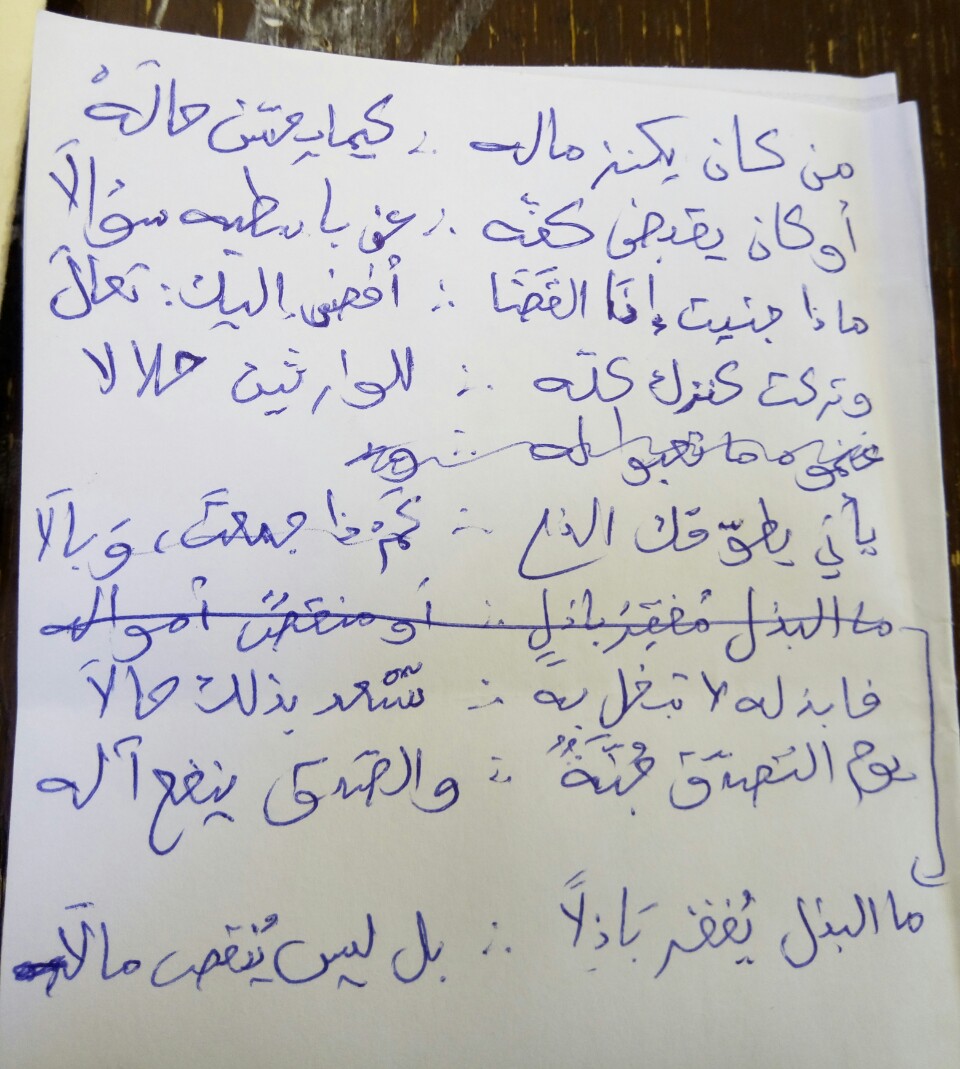 من كان يكنز ماله ∴ كيما يمتن حالَهْ
أو كان يقبض كفه ∴ عن باسطيه سؤالَا
ماذا جنيت إذا القَضَا ∴ أفضى إليك: تعالَ
وتركت كنزك كله ∴ للوارثين حلالا
غنموا وما تعبوا له ∴
يأتي يطوّقك الذي ∴ كَمْ ذا جمعتَ، وَبالَا
ما البذل مُفقِرُ باذلٍ ∴ أو منقصٌ أمواله
فابذله لا تبخل به ∴ سَّتسعد بذلك حالَا
يوم التَصدق جُنَةٌ ∴ والصدق ينفع آله
ما البذل يُفقر بَاذِلاً ∴ بل ليس يُنقص مالَا